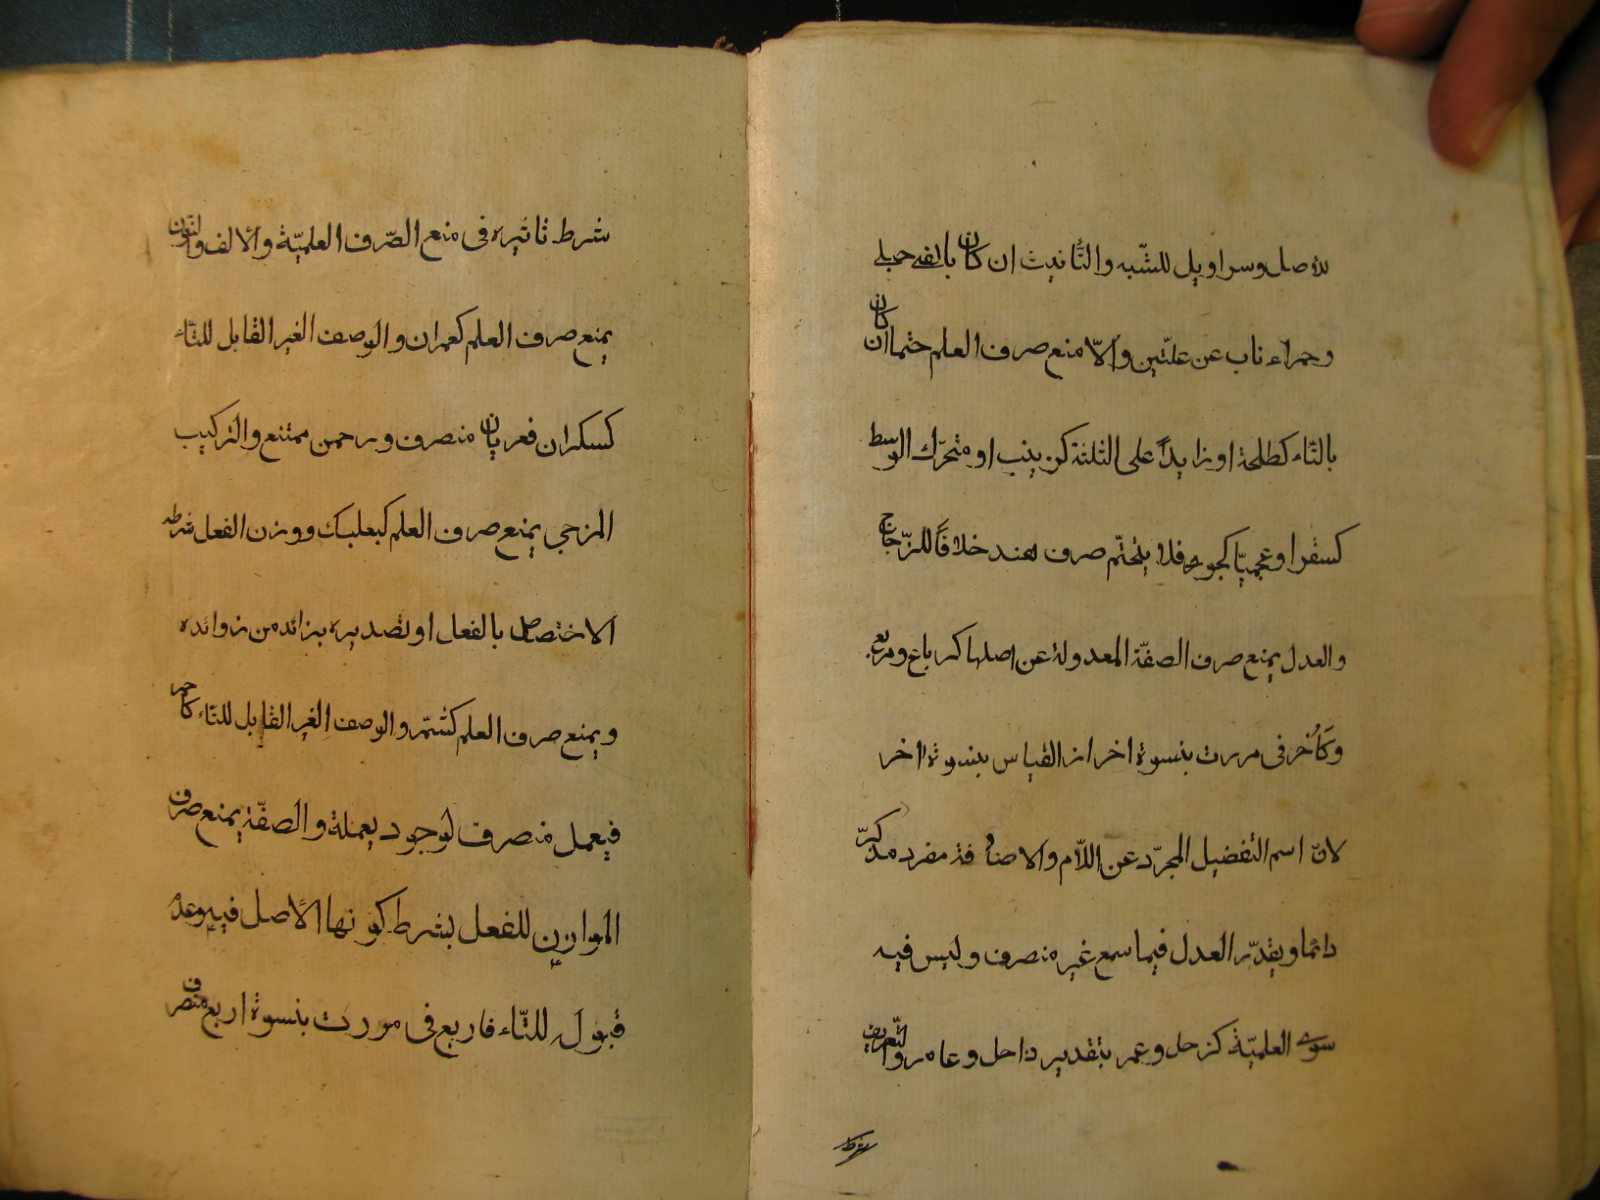 للاصل وسراويل للشبه والتأنيث ان كان بالفي حبلى
وحمراء ناب عن علتين والّا منع صرف العلم حتما ان كان
بالتّاء كطلحة او زايداً على الثلثة كزينب او متحرّك الوسط
كسقر او عجميّا كجور فلا يتحتّم صرف هند خلافاً للزّجاج
والعدل يمنع صرف الصفّة المعدولة عن اصلها كرباع ومربع
وكَاُخر فى مررت بنسوة اخر اذ القياس بنسوة اخر
لانّ اسم التفضيل المجرّد عن اللاّم والاضافة مفرد مذكرّ
دائما ويقدّر العدل فيما سمع غير منصرف وليس فيه
سوى العلميّة كزحل وعمر بتقدير زاحل وعامر والتّعريف
شرط
شرط تاثيره فى منع الصّرف العلميّة والالف والنّون
يمنع صرف العلم كعمران والوصف الغير القابل للتّاء
كسكران فعريان منصرف ورحمن ممتنع والتركيب
المزجي يمنع صرف العلم كبعلبك ووزن الفعل شرطه
الاختصاص بالفعل او تصديره بزائد من زوائده
ويمنع صرف العلم كشمّر والوصف الغير القابل للتّاء كاحمر
فيعمل منصرف لوجود يعملة والصفّة يمنع صرف
الموازن للفعل بشرط كونها الأصل فيه وعدم
قبوله للتّاء فاربع فى مررت بنسوة اربع منصرف